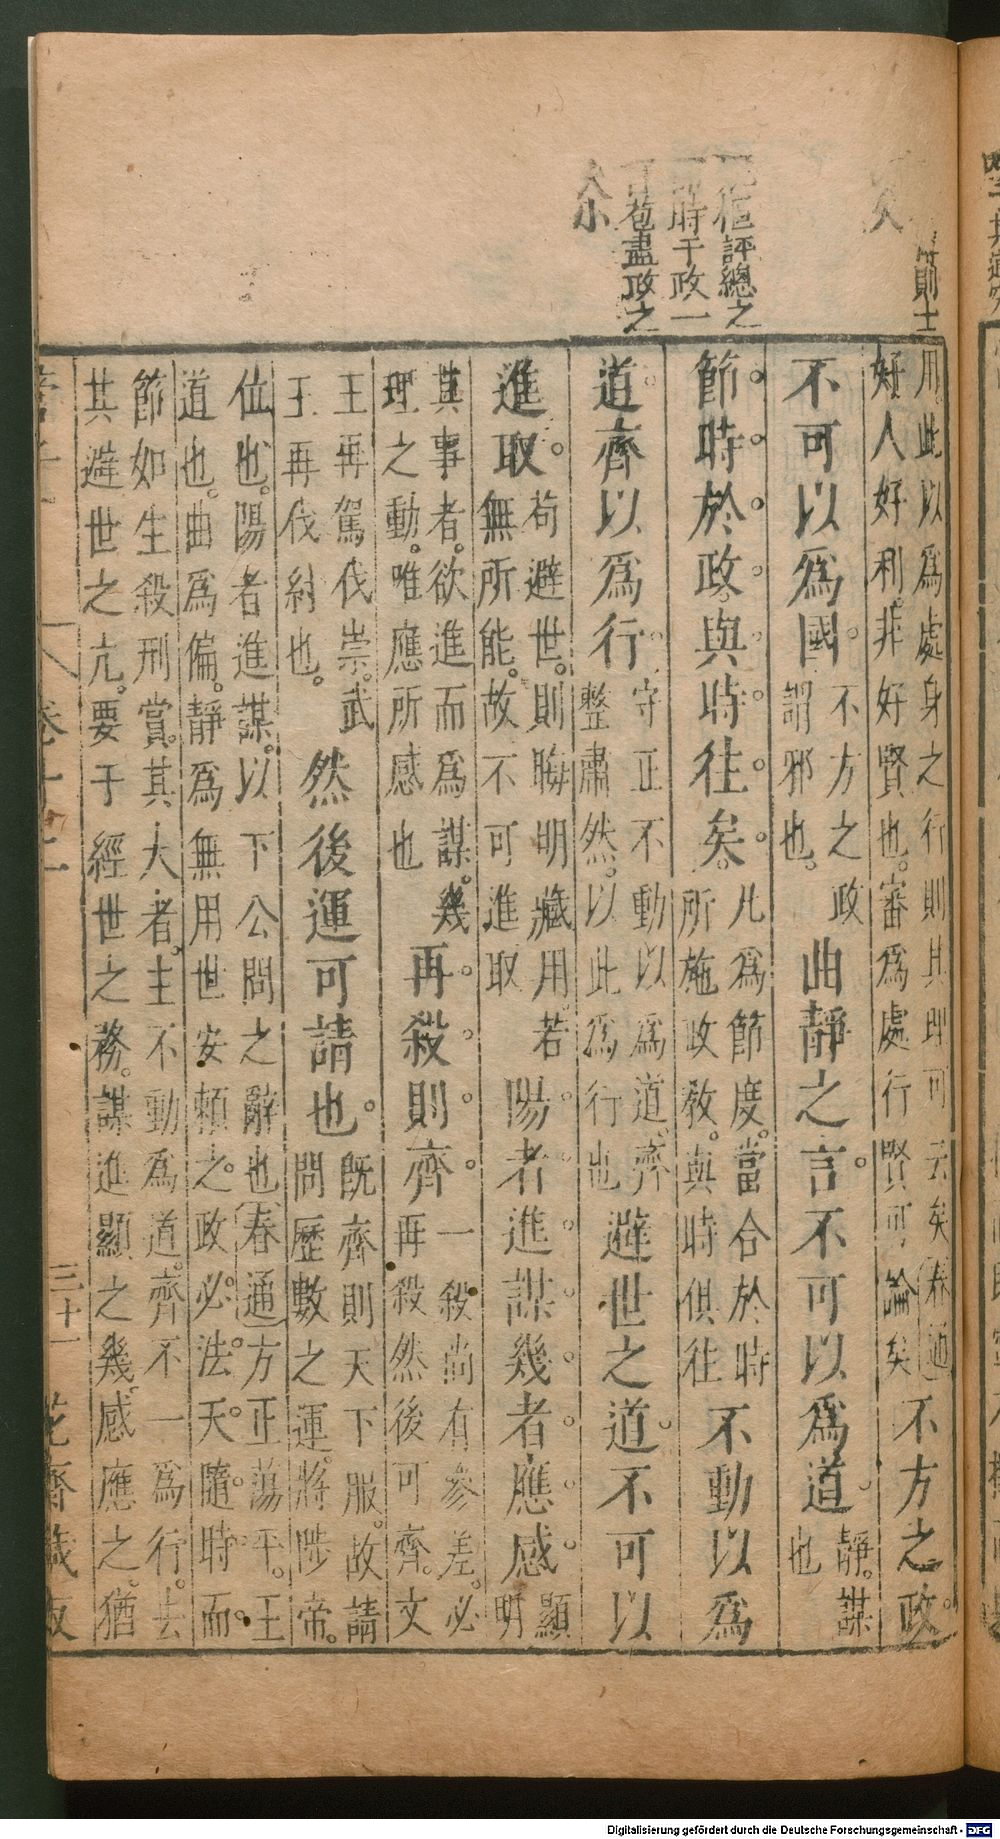 則士
評總之
時于政一
苞盡政之
用。此以爲處身之行則其理可云矣春通
好人好利。非好賢也。審爲處行賢可論矣
不方之政。
不可以爲國。
不方之政
謂邪也。
曲靜之言。不可以爲道。
靜。謀
也
節時於政。與時往矣。
凡爲節度。當合於時
所施政教。與時俱往
不動以爲
道齊以爲行。
守正不動以爲道。齊
整肅然。以此爲行也
避世之道。不可以
進取。
苟避世。則晦明藏用。若
無所能。故不可進取
陽者進謀。幾者應感。
顯
明
其事者。欲進而爲謀。幾
理之動。唯應所感也
再殺則齊。
一殺尚有參差。必
再殺然後可齊。文
王再駕伐崇。武
王再伐紂也。
然後運可請也。
既齊則天下服。故請
問歷數之運。將陟帝。
位也。陽者進謀。以下公問之辭也春通方正蕩平。王
道也。曲爲偏。靜爲無用世安賴之。政必法天。隨時而
節如生殺刑賞。其大者。主不動爲道。齊不一爲行。去
其避世之亢。要于經世之務。謀進顯之幾。感應之猶
三十一
Digitalisierung gefördert durch die Deutsche Forschungsgemeinschaft - DFG